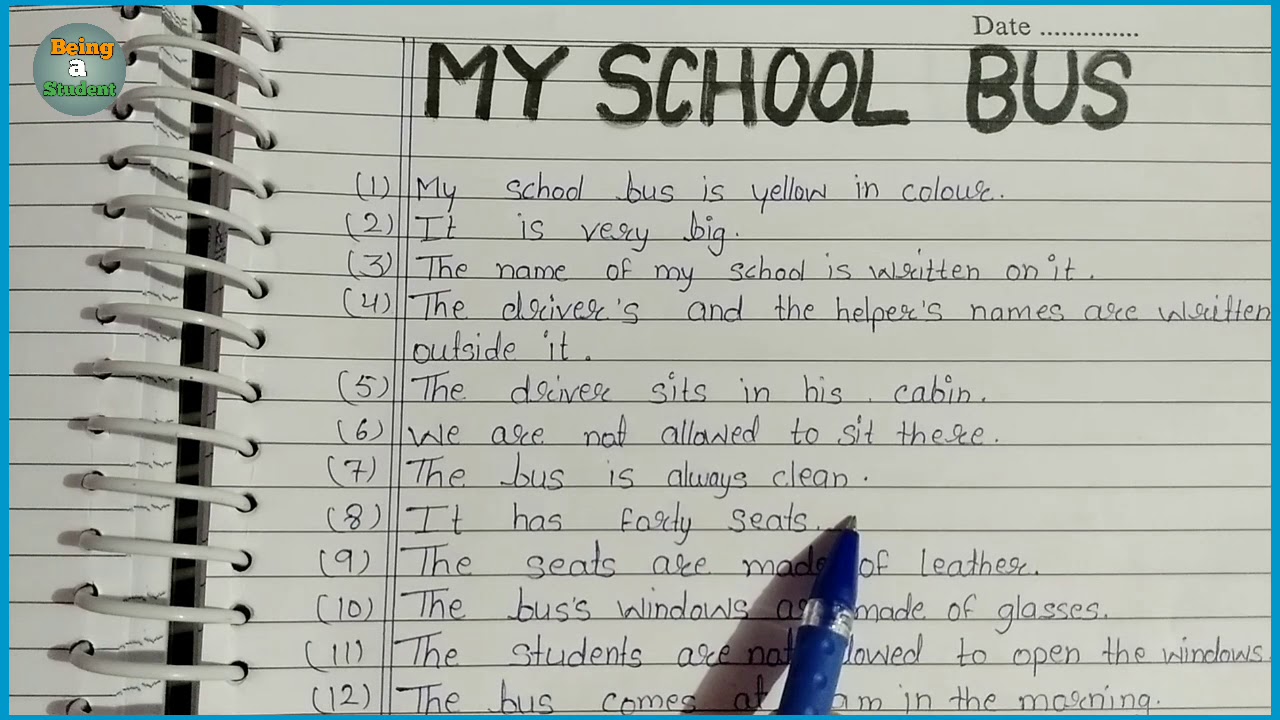 Being
a
Student
Date ..............
MY SCHOOL BUS
(1) My school bus is yellow in colour.
(2) It is very big.
(3) The name of my school is written on it.
(4) The driver's and the helper's names are written
outside it.
(5) The driver sits in his . cabin.
(6) We are not allowed to sit there.
(7) The bus is always clean.
(8) It has forty seats.
(9) The seats are made of leather.
(10) The bus's windows are made of glasses.
(11) The students are not allowed to open the windows.
(12) The bus comes at am in the morning.